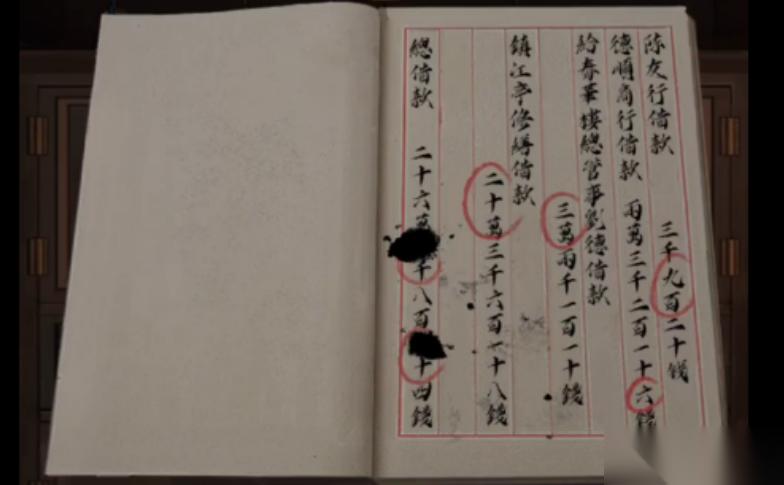 陈友行借款 三千九百二十钱
德順商行借款 兩萬三千二百一十六錢
給春華樓總管事劉德借款 三萬兩千一百一十錢
鎮江亭修繕借款 二十萬三千六百一十八錢
總借款 二十六萬 千八百 十四錢